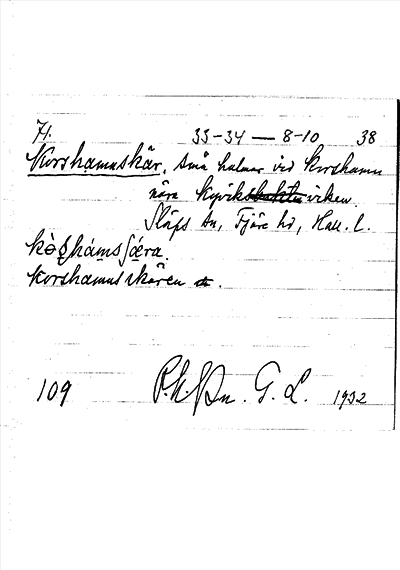 H. 33-34 — 8-10 38
Korshamnskär, små holmar vid Korshamn
nära Kyviksviken.
Släps sn, Fjäre hd, Hall. l.
kòṣhámsʃǽra.
Korshamnsskären
109 G. L. 1932